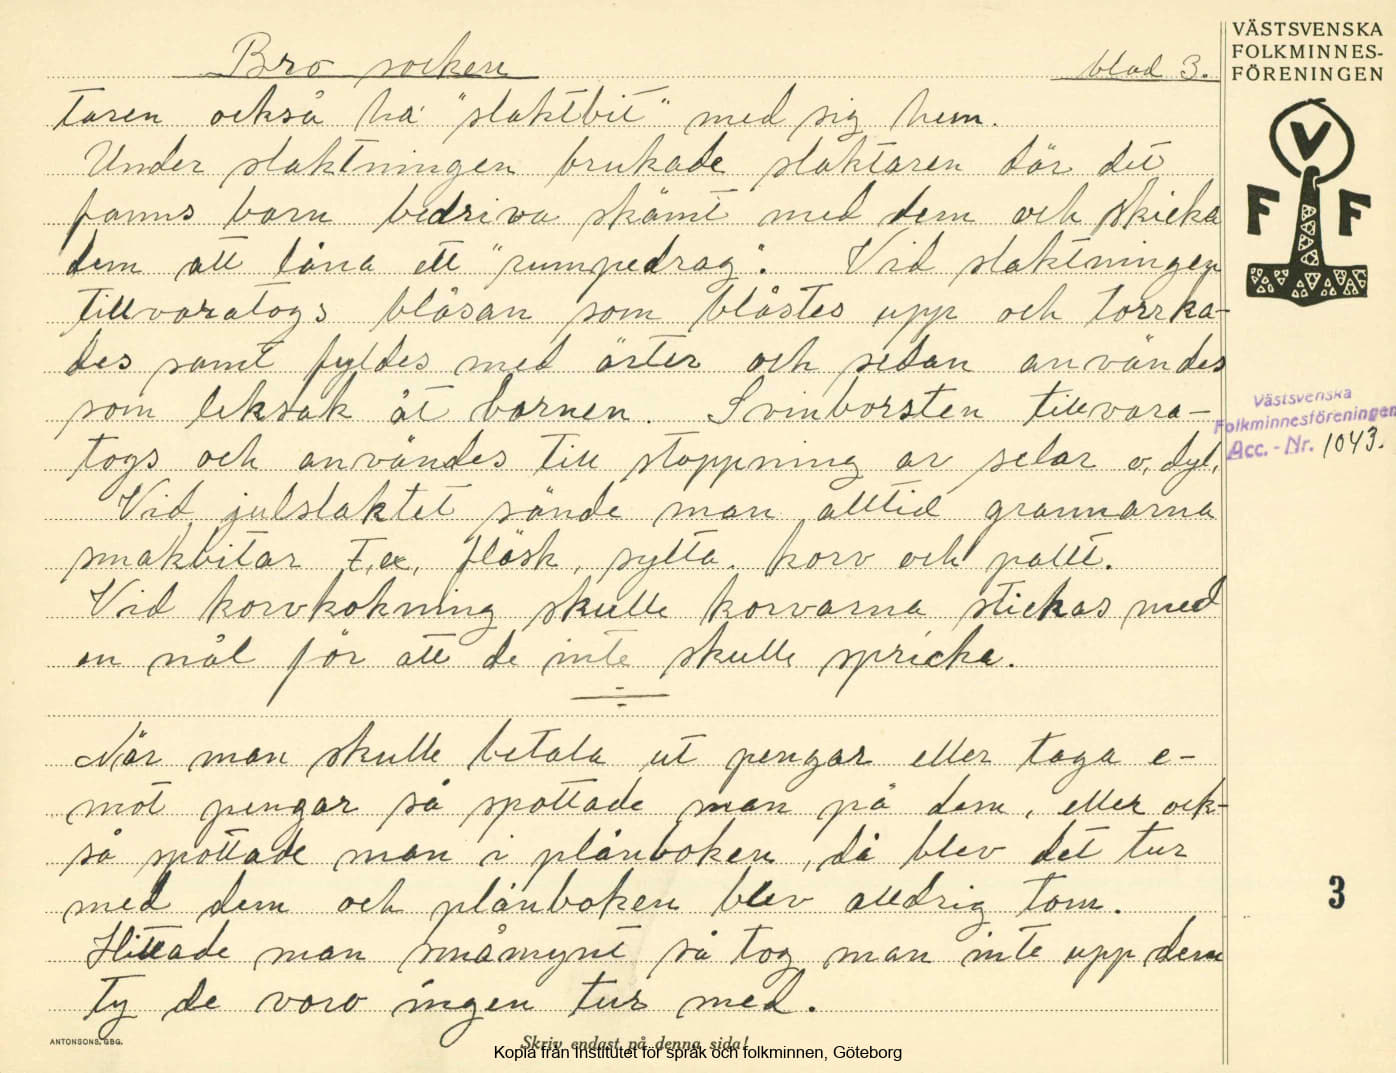 Bro socken
blad 3.
VÄSTSVENSKA
FOLKMINNES-
FÖRENINGEN
V
F F
taren också ha "slaktbit" med sig hem.
Under slaktningen brukade slaktaren där det
fanns barn bedriva skämt med dem och skicka
dem att låna ett "rumpedrag". Vid slaktningen
tillvaratogs blåsan som blåstes upp och torrka-
des samt fyldes med ärter och sedan användes
som leksak åt barnen. Svinborsten tillvara-
togs och användes till stoppning av selar o, dyl,
Vid julslaktet sände man alltid grannarna
smakbitar t,ex, fläsk, sylta, korv och palt.
Vid korvkokning skulle korvarna stickas med
en nål för att de inte skulle spricka.
När man skulle betala ut pengar eller taga e-
mot pengar så spottade man på dem, eller ock-
så spottade man i plånboken, då blev det tur
med dem och plånboken blev alldrig tom.
Hittade man småmynt så tog man inte upp dem
ty de voro ingen tur med.
Västsvenska
Folkminnesföreningen
Acc.-Nr. 1043.
3
ANTONSONS, GBG.
Skriv endast på denna sida!
Kopia från Institutet för språk och folkminnen, Göteborg